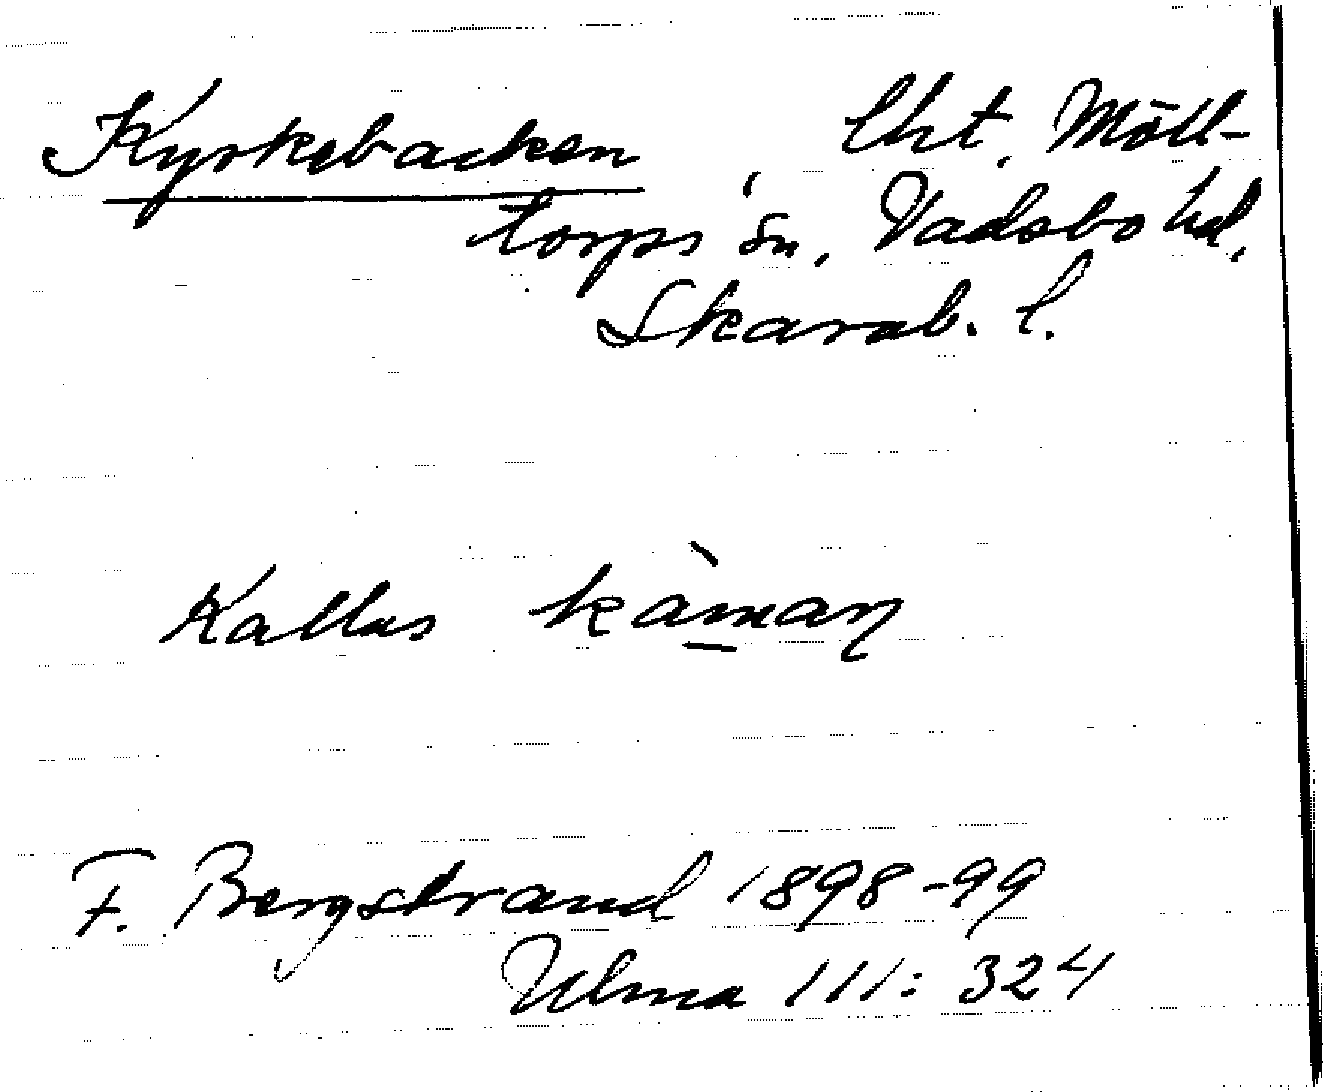 Kyrkebacken, lht, Möll-
torps sn, Vadsbo hd,
Skarab. l.
Kallas kàman
F. Bergstrand 1898-99
Ulma 111: 324